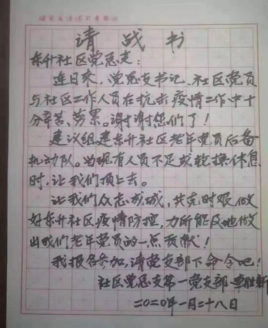 请战书
东升社区党总支：
连日来，党总支书记、社区党员
与社区工作人员在抗击疫情工作中十
分辛苦、劳累。谢谢您们了！
建议组建东升社区老年党员后备
机动队。如现有人员不足或轮换休息
时，让我们顶上去。
让我们众志成城，共克时艰，做
好东升社区疫情防控，力所能及地做
出我们老年党员的一点贡献！
我报名参加，请党支部下命令吧！
社区党总支第一党支部
二〇二〇年一月二十八日